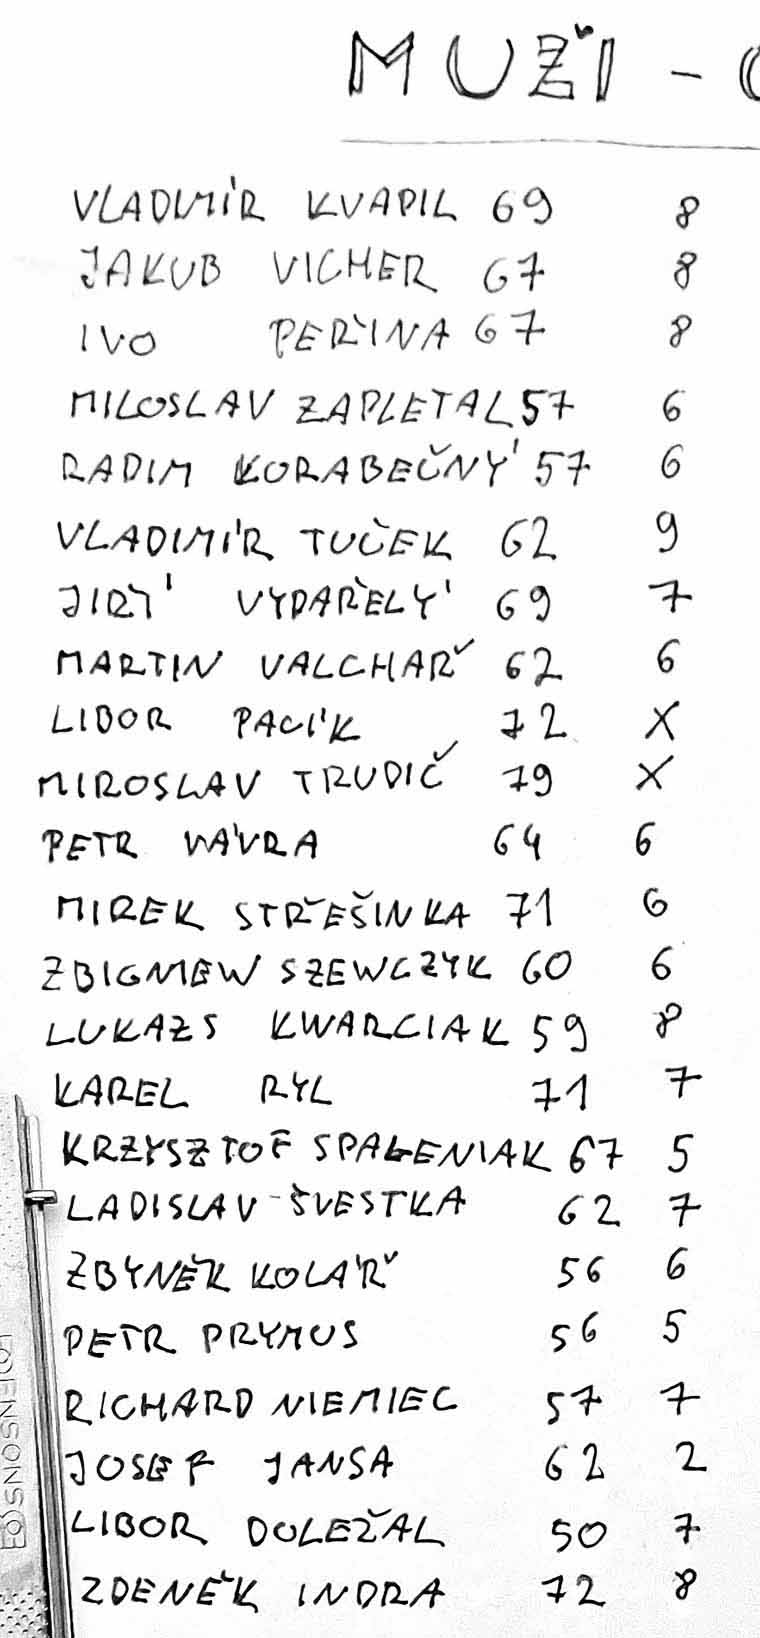 MUŽI -
VLADIMÍR KVAPIL 69 8
JAKUB VICHER 67 8
IVO PEŘINA 67 8
MILOSLAV ZAPLETAL 57 6
RADIM KORABEČNÝ 57 6
VLADIMÍR TUČEK 62 9
JIŘÍ VYDAŘELÝ 69 7
MARTIN VALCHAŘ 62 6
LIBOR PACÍK 72 X
MIROSLAV TRUDIČ 79 X
PETR VÁVRA 64 6
MIREK STŘEŠINKA 71 6
ZBIGNIEW SZEWCZYK 60 6
LUKAZS KWARCIAK 59 8
KAREL RYL 71 7
KRZYSZTOF SPALENIAK 67 5
LADISLAV ŠVESTKA 62 7
ZBYNĚK KOLÁŘ 56 6
PETR PRYMUS 56 5
RICHARD NIEMIEC 57 7
JOSEF JANSA 62 2
LIBOR DOLEŽAL 50 7
ZDENĚK INDRA 72 8